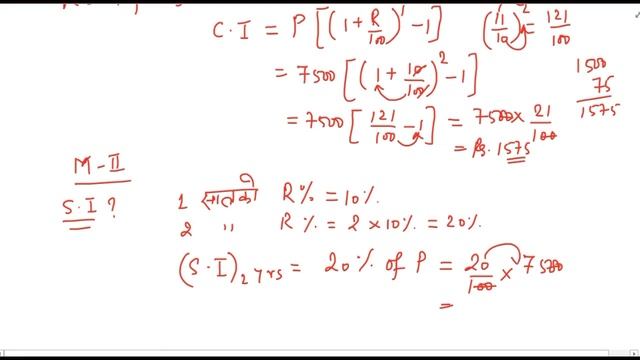 C.I = P[(1 + R/100)^1 - 1] (11/10)^2 = 121/100
= 7500[(1 + 10/100)^2 - 1] 1500
75
1575
= 7500[121/100 - 1] = 7500 × 21/100
= Rs. 1575
M-II
S.I ? 1 R% = 10%
2 " R% = 2 × 10% = 20%
(S.I)2 yrs = 20% of P = 20/100 × 7500
=